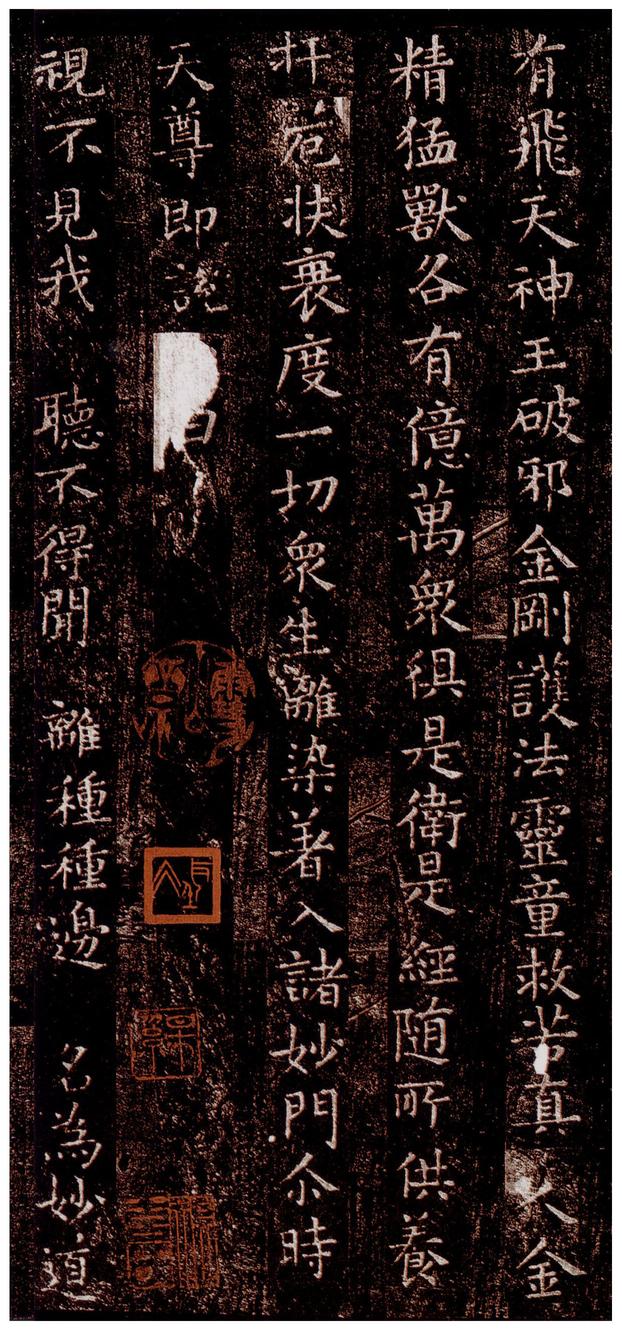 有飛天神王破邪金剛護法靈童救苦真人金
精猛獸各有億萬眾俱是衛是經隨所供養
扞厄扶衰度一切眾生離染著入諸妙門尒時
天尊即說
視不見我 聽不得聞 離種種邊 名為妙道